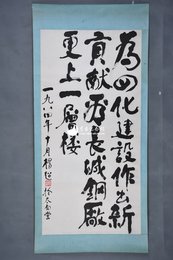 為四化建設作出新
貢献为長城鋼廠
更上一層楼
一九八四年十月楊超